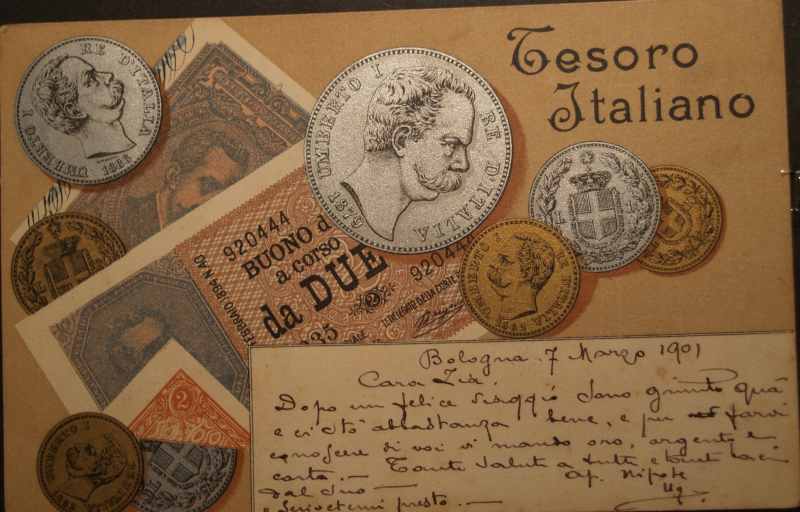 Tesoro
Italiano
RE D'ITALIA
UMBERTO I
UMBERTO I RE D'ITALIA
1879
920444
BUONO d
a corso
da DUE
920444
FEBBRAIO 1894 N. 40
2
UMBERTO I RE D'ITALIA
L
L
UMBERTO I
Bologna 7 Marzo 1901
Cara Zia.
Dopo un felice viaggio sono giunto quà
e ci stò abbastanza bene, e per farvi
conoscere di voi vi mando oro, argento e
carta. - Tanti saluti a tutti e tanti baci
dal tuo aff. Nipote
e scrivetemi presto. -
Ug.